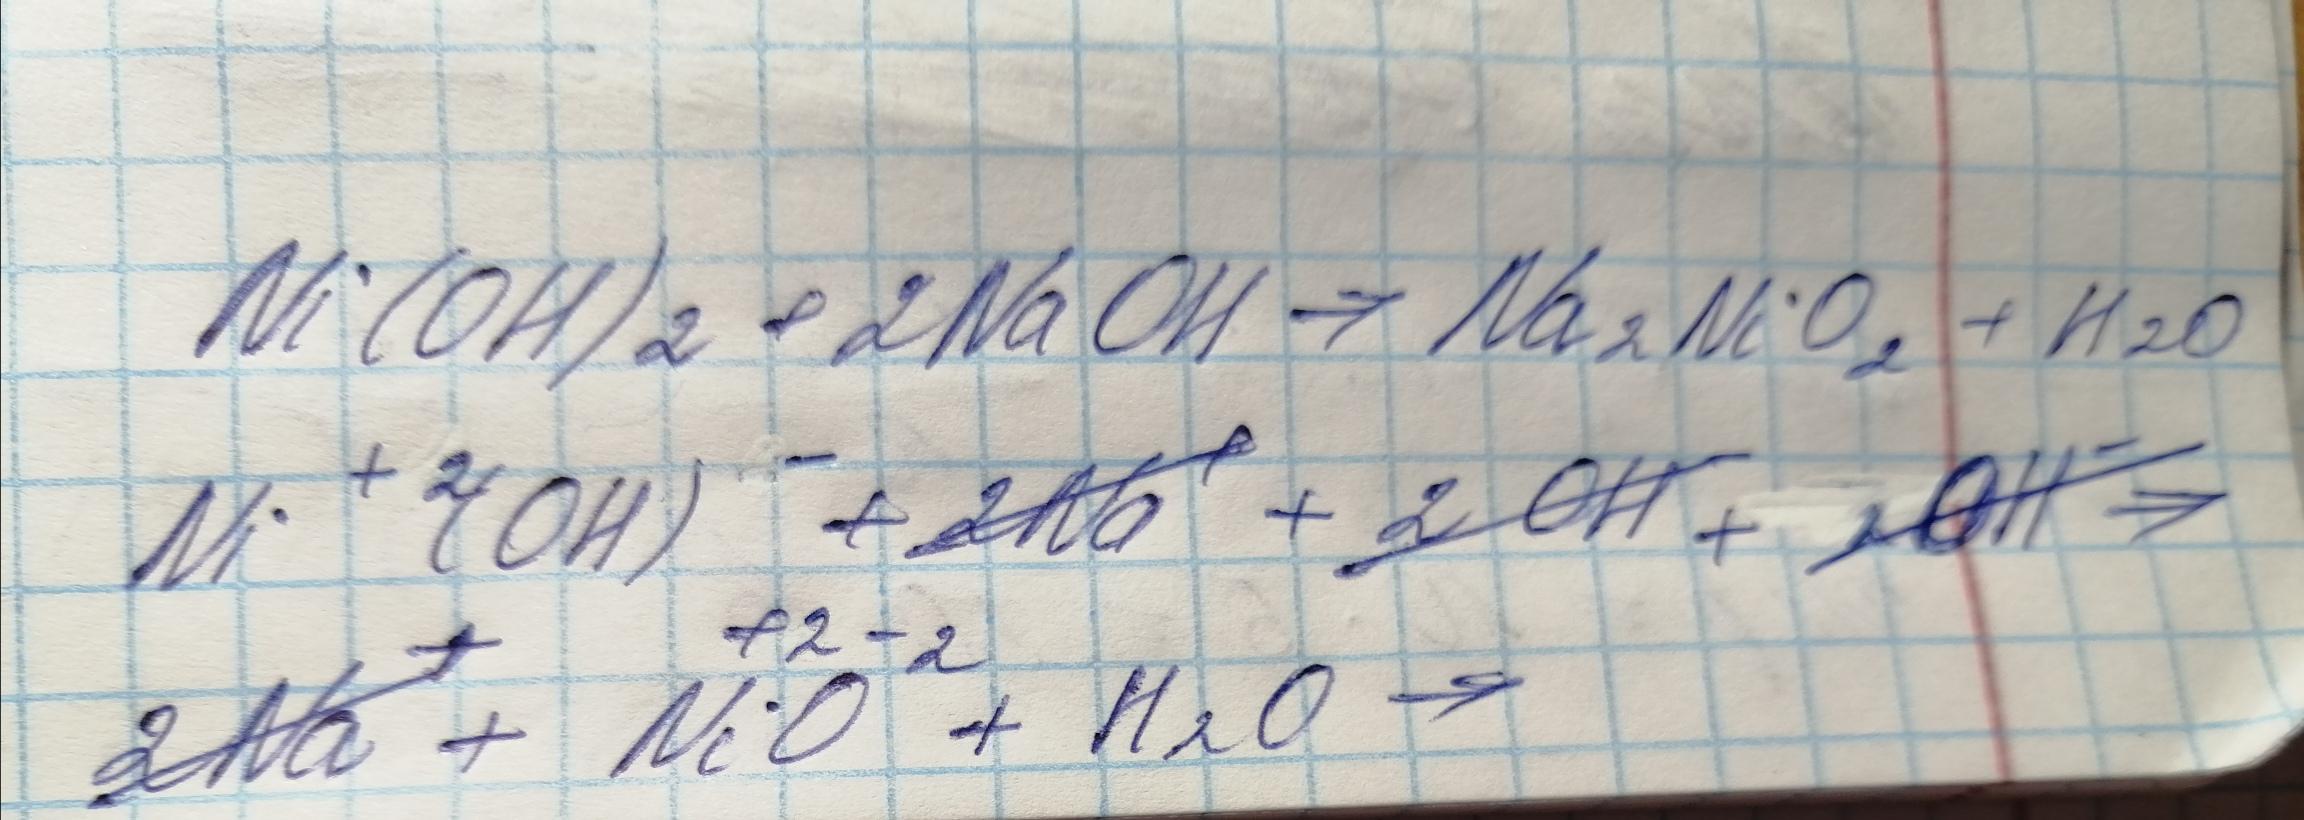 Ni(OH)2 + 2NaOH → Na2NiO2 + H2O
Ni⁺ 2(OH)⁻ + 2Na⁺ + 2OH⁻ + 2OH⁻ →
2Na⁺ + NiO⁺²⁻² + H2O →